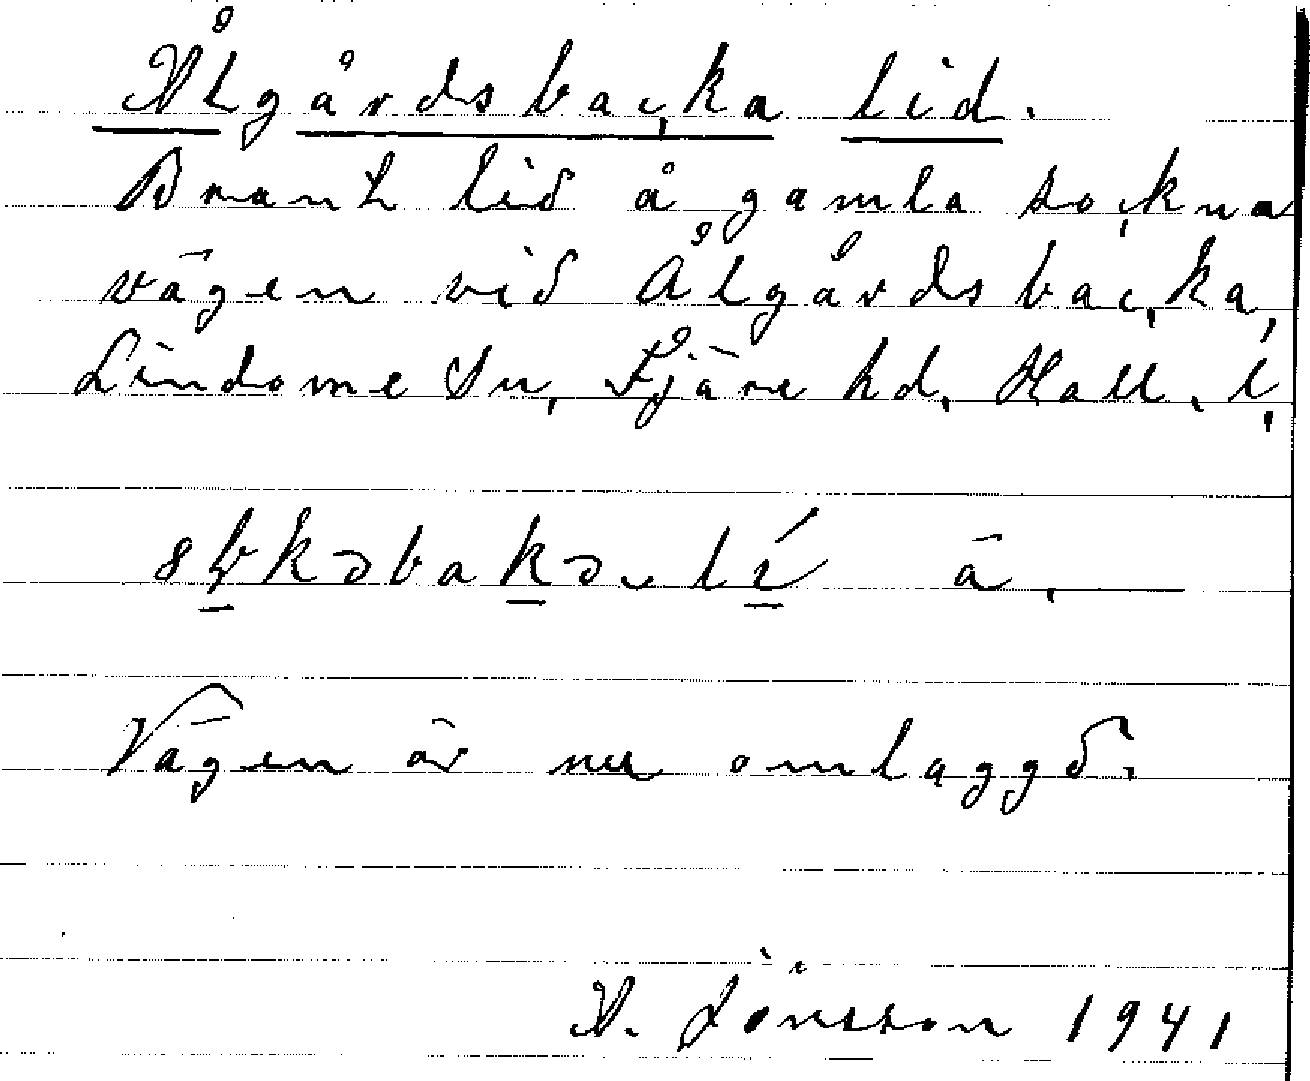 Ålgårdsbacka lid.
Brant lid å gamla sockna
vägen vid Ålgårdsbacka,
Lindome Sn, Fjäre hd, Hall. l,
ä.
Vägen är nu omlaggd.
A. Jönsson 1941